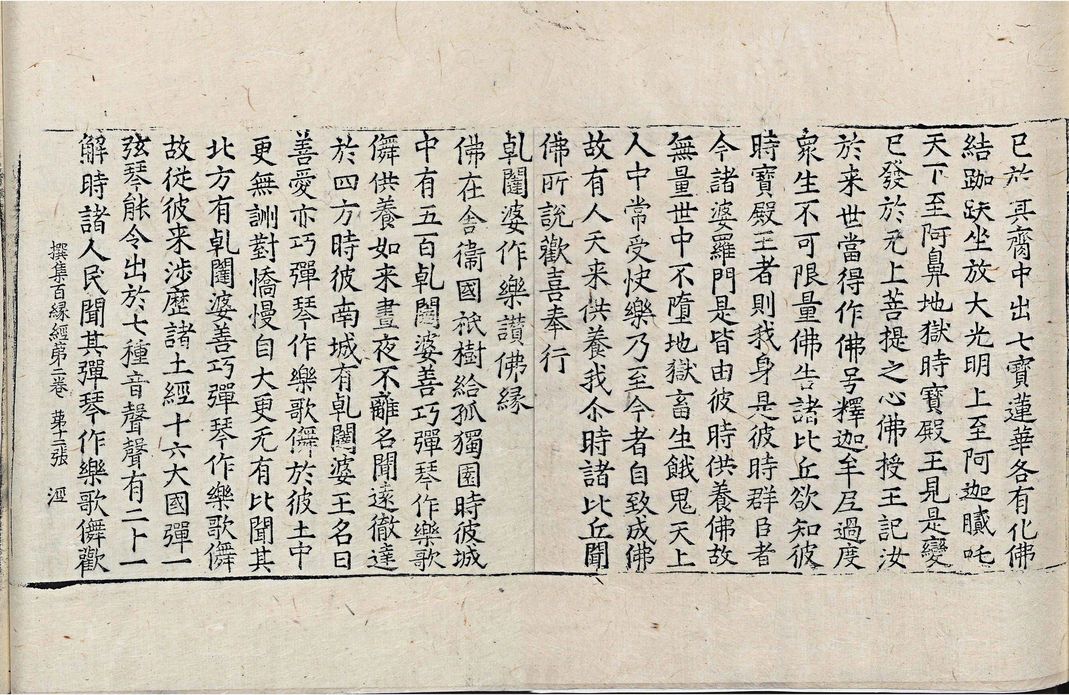 已於其齋中出七寶蓮華各有化佛
結跏趺坐放大光明上至阿迦膩吒
天下至阿鼻地獄時寶殿王見是變
已發於无上菩提之心佛授王記汝
於来世當得作佛号釋迦牟尼過度
衆生不可限量佛告諸比丘欲知彼
時寶殿王者則我身是彼時群臣者
今諸婆羅門是皆由彼時供養佛故
無量世中不墮地獄畜生餓鬼天上
人中常受快樂乃至今者自致成佛
故有人天来供養我尒時諸比丘聞
佛所說歡喜奉行
乹闥婆作樂讃佛縁
佛在舍衞國祇樹給孤獨園時彼城
中有五百乹闥婆善巧彈琴作樂歌
儛供養如来晝夜不離名聞遠徹達
於四方時彼南城有乹闥婆王名曰
善愛亦巧彈琴作樂歌儛於彼土中
更無詶對憍慢自大更无有比聞其
北方有乹闥婆善巧彈琴作樂歌儛
故從彼来涉歷諸土經十六大國彈一
弦琴能令出於七種音聲聲有二十一
解時諸人民聞其彈琴作樂歌儛歡
撰集百縁經第二卷 第十二張 淫